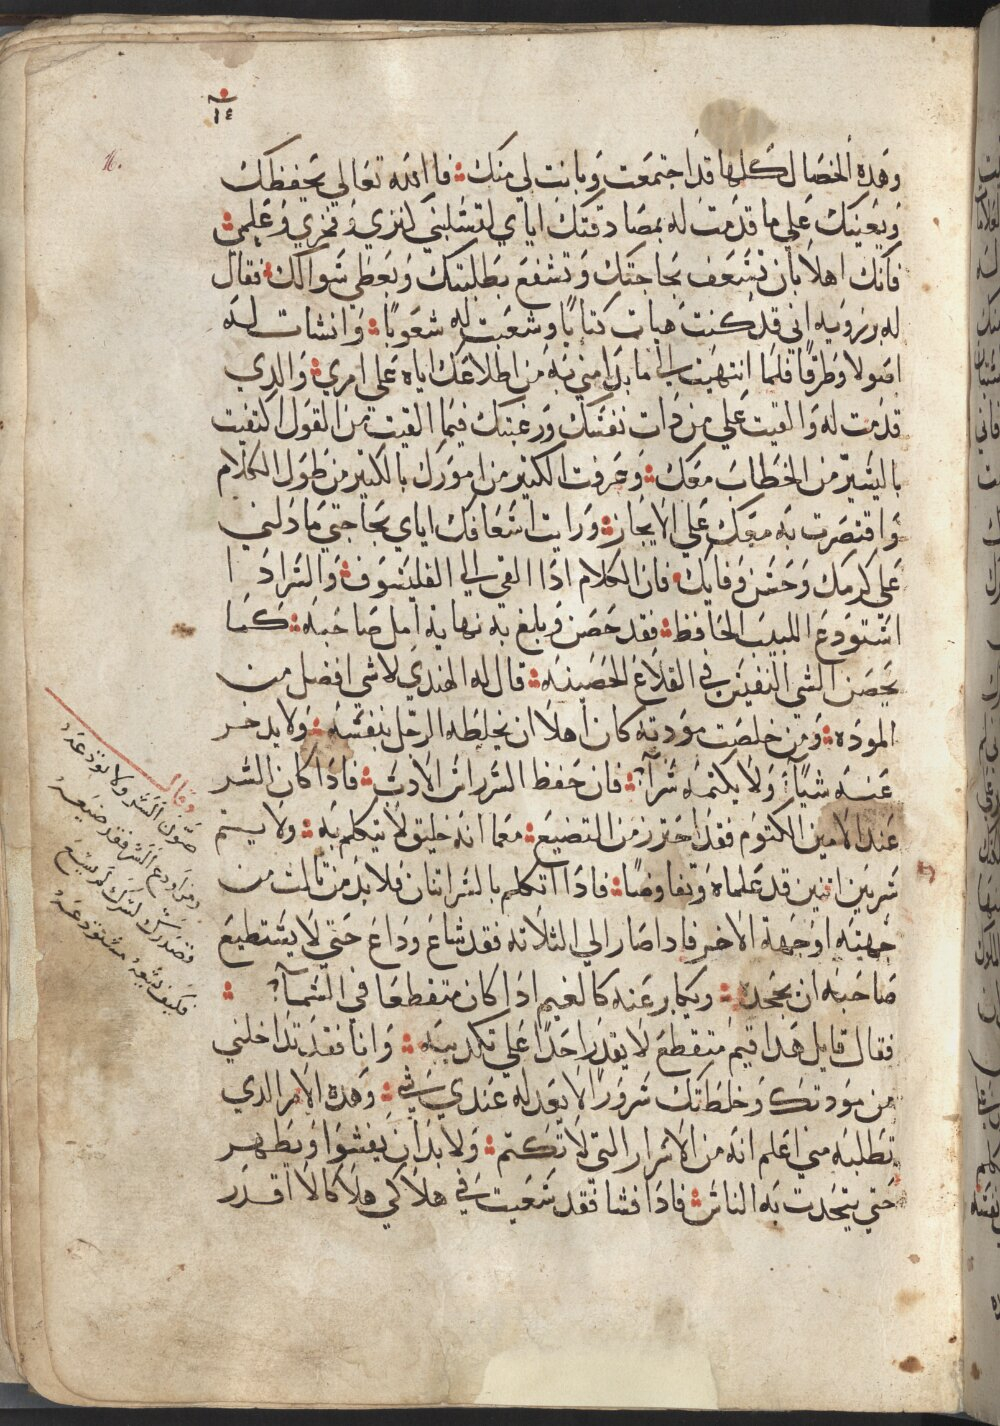 ١٤
وهذه الخصال كلها قد اجتمعت وبانت لي منك ∴ فاالله تعالي يحفظك
ويعينك علي ما قدمت له بمصادقتك اياي لتسلبني كنزي وفخري وعلمي ∴
فانك اهلا بان تسعف بحاجتك وتشفع بطلبتك وتعطي سوالك ∴ فقال
له برزويه اني قد كنت هيات كتابا وشعبت له شعوبا ∴ وانشات له
اصولا وطرقا فلما انتهيت الي ما بدا مني به من اطلاعك اياه علي امري ∴ والدي
قدمت له والقيت علي من دات نفسك ورغبتك فيما القيت من القول اكتفيت
باليسير من الخطاب معك ∴ وعرفت الكتير من امورك بالكتير من طول الكلام
واقتصرت به معك علي الايجاز ∴ ورايت اسعافك اياي بحاجتي ما دلني
علي كرمك وحسن وفايك ∴ فان الكلام ادا القي الي الفليسوف ∴ والسر ادا
استودع اللبيب الحافظ ∴ فقد حصن وبلغ به نهاية امل صاحبه ∴ كما
يحصن الشي النفيس في القلاع الحصينه ∴ قال له الهندي لا شي افضل من
الموده ∴ ومن خلصت مودته كان اهلا ان يخلطه الرجل بنفسه ∴ ولا يدخر
عنه شيا ∴ ولا يكتمه سرا ∴ فان حفظ السر راس الادب ∴ فادا كان السر
عند الامين الكتوم فقد احترز من التضيع ∴ معما انه خليق لا يتكلم به ∴ ولا يتم
سر بين اتنين قد علماه وتفاوضا ∴ فادا اتكلم بالسر اتنان فلا بد من تالت من
جهته او جهة الاخر فادا صار الي الثلاته فقد شاع وداع حتي لا يستطيع
صاحبه ان يجحده ∴ ويكابر عنه كالغيم ادا كان متقطعا في السما ∴
فقال قايل هدا قيم متقطع لا يقدر احدا علي تكديبه ∴ وانا فقد تداخلني
من مودتك وخلطتك سرورا لا يعدله عندي شي ∴ وهده الامر الدي
تطلبه مني اعلم انه من الاسرار التي لا تكتم ∴ ولا بد ان يفشوا ويظهر
حتي يتحدت به الناس ∴ فادا فشا فقد سعيت في هلاكي هلاكا لا اقدر
وقال
صون السر ولا تودعه
ومن اودع السر فقد ضيعه
فصدرك لسرك لم يتسع
فكيف يسعه مستودعه